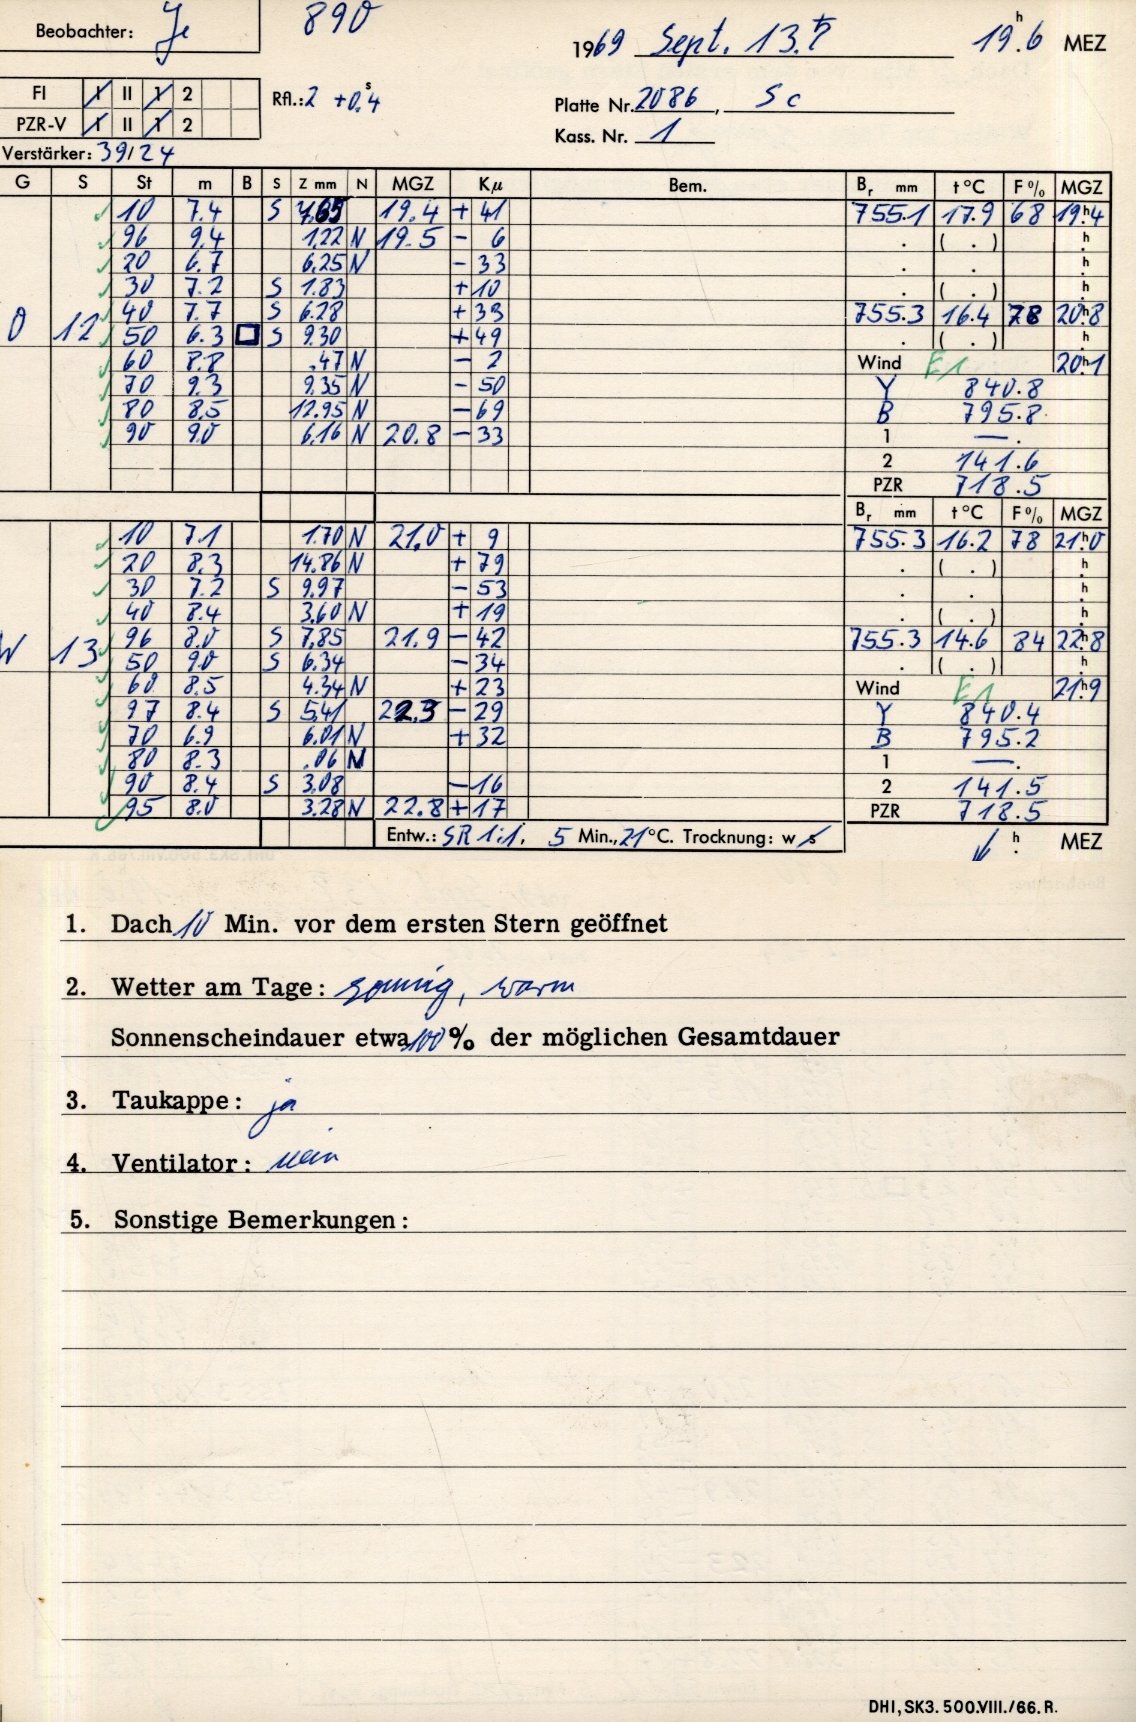 Beobachter: Je 890
1969 Sept. 13. 19.6 h MEZ
FI I II 1 2 Rfl.: 2 +0.4 s Platte Nr. 2086, Sc
PZR-V I II 1 2 Kass. Nr. 1
Verstärker: 39/24
G S St m B S Z mm N MGZ Kμ Bem. Br mm t °C F % MGZ
10 7.4 S 7.65 19.4 + 41 755.1 17.9 68 19h4
96 9.4 1.22 N 19.5 - 6 . ( . ) h
20 6.7 6.25 N - 33 . . h
30 7.2 S 1.83 + 10 . ( . ) h
40 7.7 S 6.28 + 33 755.3 16.4 78 20h8
O 12 50 6.3 S 9.30 + 49 . ( . ) h
60 8.8 .47 N - 2 Wind E1 20h1
70 9.3 9.35 N - 50 Y 840.8
80 8.5 12.95 N - 69 B 795.8
90 9.0 6.16 N 20.8 - 33 1 — .
2 141.6
PZR 718.5
Br mm t °C F % MGZ
10 7.1 1.70 N 21.0 + 9 755.3 16.2 78 21h0
20 8.3 14.86 N + 79 . ( . ) h
30 7.2 S 9.97 - 53 . . h
40 8.4 3.60 N + 19 . ( . ) h
96 8.0 S 7.85 21.9 - 42 755.3 14.6 84 22h8
W 13 50 9.0 S 6.34 - 34 . ( . ) h
60 8.5 4.34 N + 23 Wind E1 21h9
97 8.4 S 5.41 22.3 - 29 Y 840.4
70 6.9 6.01 N + 32 B 795.2
80 8.3 .06 N 1 — .
90 8.4 S 3.08 - 16 2 141.5
95 8.0 3.28 N 22.8 + 17 PZR 718.5
Entw.: SR 1:1, 5 Min., 21 °C. Trocknung: w s h . MEZ
1. Dach 10 Min. vor dem ersten Stern geöffnet
2. Wetter am Tage: sonnig, warm
Sonnenscheindauer etwa 100 % der möglichen Gesamtdauer
3. Taukappe: ja
4. Ventilator: nein
5. Sonstige Bemerkungen:
DHI, SK3. 500.VIII./66. R.